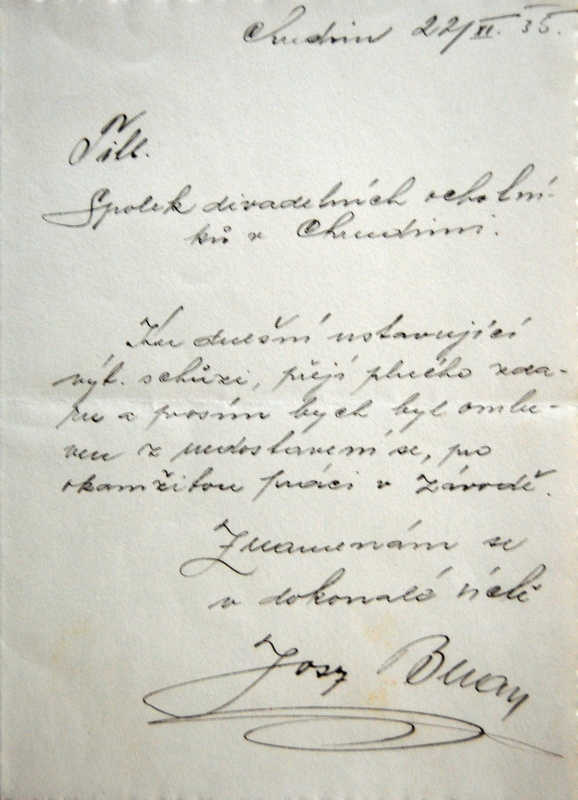 Chrudim 22/XI. 35.
Titl.
Spolek divadelních ochotní-
ků v Chrudimi.
Ku dnešní ustavující
výb. schůzi, přeji plného zda-
ru a prosím bych byl omlu-
ven z nedostavení se, pro
okamžitou práci v závodě.
Znamenám se
v dokonalé úctě